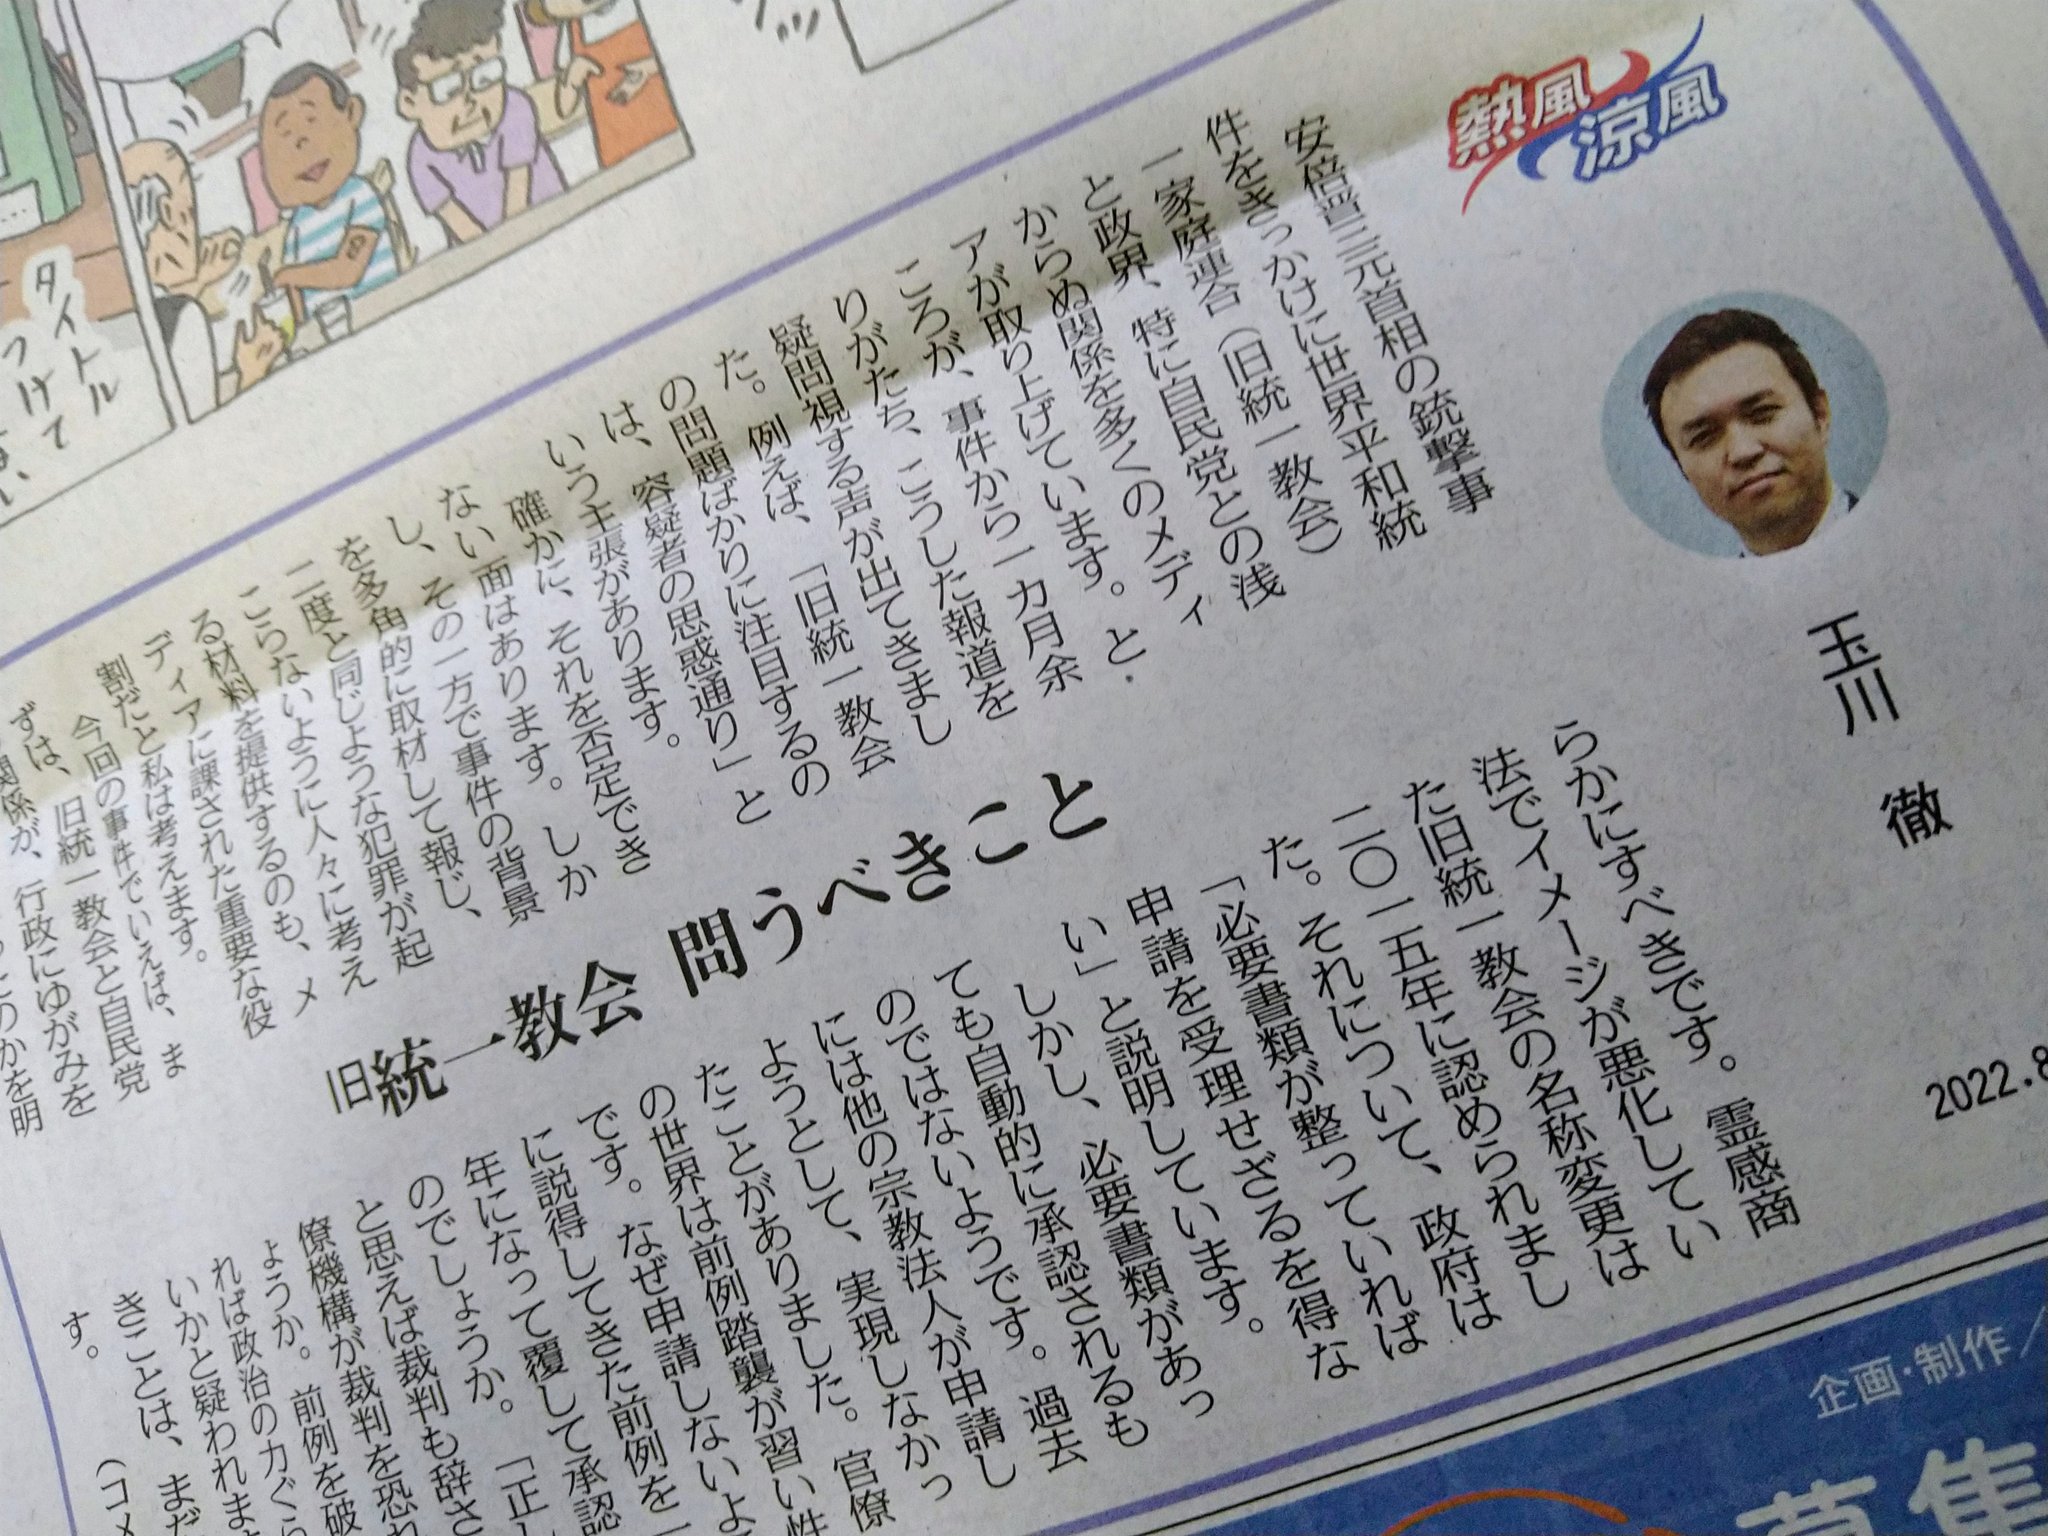 熱風
涼風
玉川 徹
2022.8
旧統一教会 問うべきこと
安倍晋三元首相の銃撃事
件をきっかけに世界平和統
一家庭連合（旧統一教会）
と政界、特に自民党との浅
からぬ関係を多くのメディ
アが取り上げています。と
ころが、事件から一カ月余
りがたち、こうした報道を
疑問視する声が出てきまし
た。例えば、「旧統一教会
の問題ばかりに注目するの
は、容疑者の思惑通り」と
いう主張があります。
確かに、それを否定でき
ない面はあります。しか
し、その一方で事件の背景
を多角的に取材して報じ、
二度と同じような犯罪が起
こらないように人々に考え
る材料を提供するのも、メ
ディアに課された重要な役
割だと私は考えます。
今回の事件でいえば、ま
ずは、旧統一教会と自民党
関係が、行政にゆがみを
のかを明
らかにすべきです。霊感商
法でイメージが悪化してい
た旧統一教会の名称変更は
二〇一五年に認められまし
た。それについて、政府は
「必要書類が整っていれば
申請を受理せざるを得な
い」と説明しています。
しかし、必要書類があっ
ても自動的に承認されるも
のではないようです。過去
には他の宗教法人が申請し
ようとして、実現しなかっ
たことがありました。官僚
の世界は前例踏襲が習い性
です。なぜ申請しないよ
に説得してきた前例を一
年になって覆して承認
のでしょうか。「正し
と思えば裁判も辞さ
僚機構が裁判を恐れ
ようか。前例を破
れば政治の力ぐら
いかと疑われます
きことは、まだ
す。
（コメ
タイトル
つけて
企画・制作／
募集